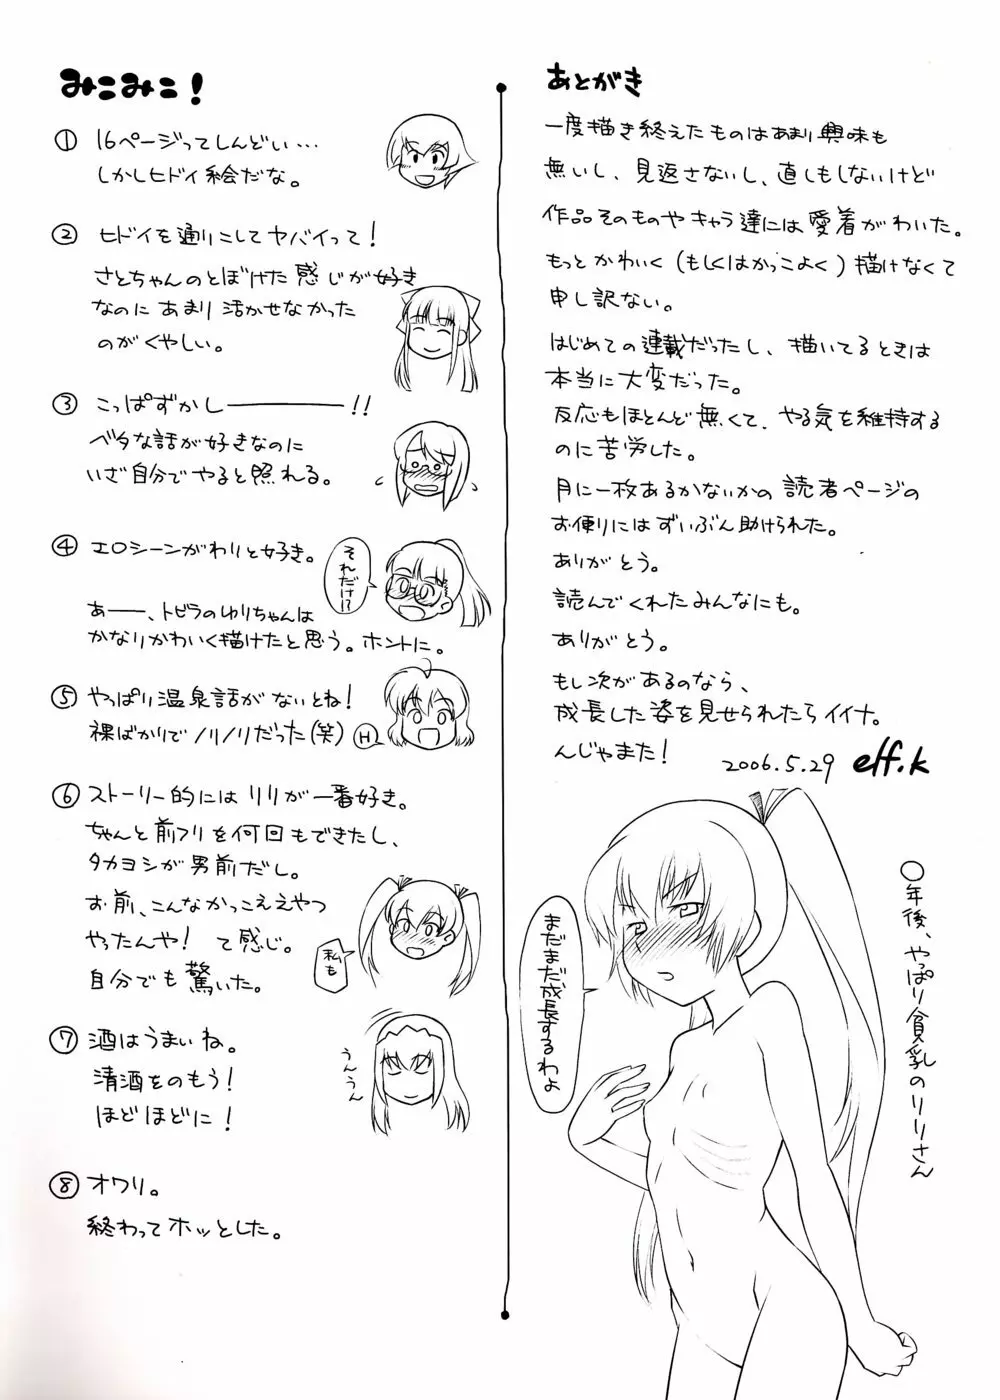 みこみこ！
① 16ページってしんどい…
しかしヒドイ絵だな。
② ヒドイを通りこしてヤバイって！
さとちゃんのとぼけた感じが好き
なのに あまり活かせなかった
のがくやしい。
③ こっぱずかし――――!!
ベタな話が好きなのに
いざ自分でやると照れる。
④ エロシーンがわりと好き。
それだけ!?
あ――、トビラのゆりちゃんは
かなりかわいく描けたと思う。ホントに。
⑤ やっぱり温泉話がないとね！
裸ばかりでノリノリだった(笑)
H
⑥ ストーリー的にはリリが一番好き。
ちゃんと前フリを何回もできたし、
タカヨシが男前だし。
お前、こんなかっこええやつ
やったんや！ て感じ。
自分でも驚いた。
私も
⑦ 酒はうまいね。
清酒をのもう！
ほどほどに！
うんうん
⑧ オワリ。
終わってホッとした。
あとがき
一度描き終えたものはあまり興味も
無いし、見返さないし、直しもしないけど
作品そのものやキャラ達には愛着がわいた。
もっとかわいく(もしくはかっこよく)描けなくて
申し訳ない。
はじめての連載だったし、描いてるときは
本当に大変だった。
反応もほとんど無くて、やる気を維持する
のに苦労した。
月に一枚あるかないかの読者ページの
お便りにはずいぶん助けられた。
ありがとう。
読んでくれたみんなにも。
ありがとう。
もし次があるのなら、
成長した姿を見せられたらイイナ。
んじゃまた！
2006.5.29 elf.k
○年後、やっぱり貧乳のリリさん
まだまだ成長するわよ